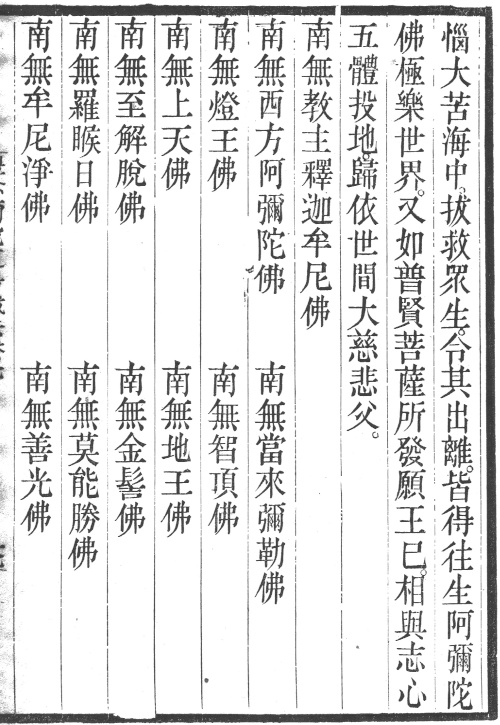 惱大苦海中。拔救眾生。令其出離。皆得往生阿彌陀
佛極樂世界。又如普賢菩薩所發願王已。相與志心
五體投地。歸依世間大慈悲父。
南無教主釋迦牟尼佛
南無西方阿彌陀佛　南無當來彌勒佛
南無燈王佛　南無智頂佛
南無上天佛　南無地王佛
南無至解脫佛　南無金髻佛
南無羅睺日佛　南無莫能勝佛
南無牟尼淨佛　南無善光佛